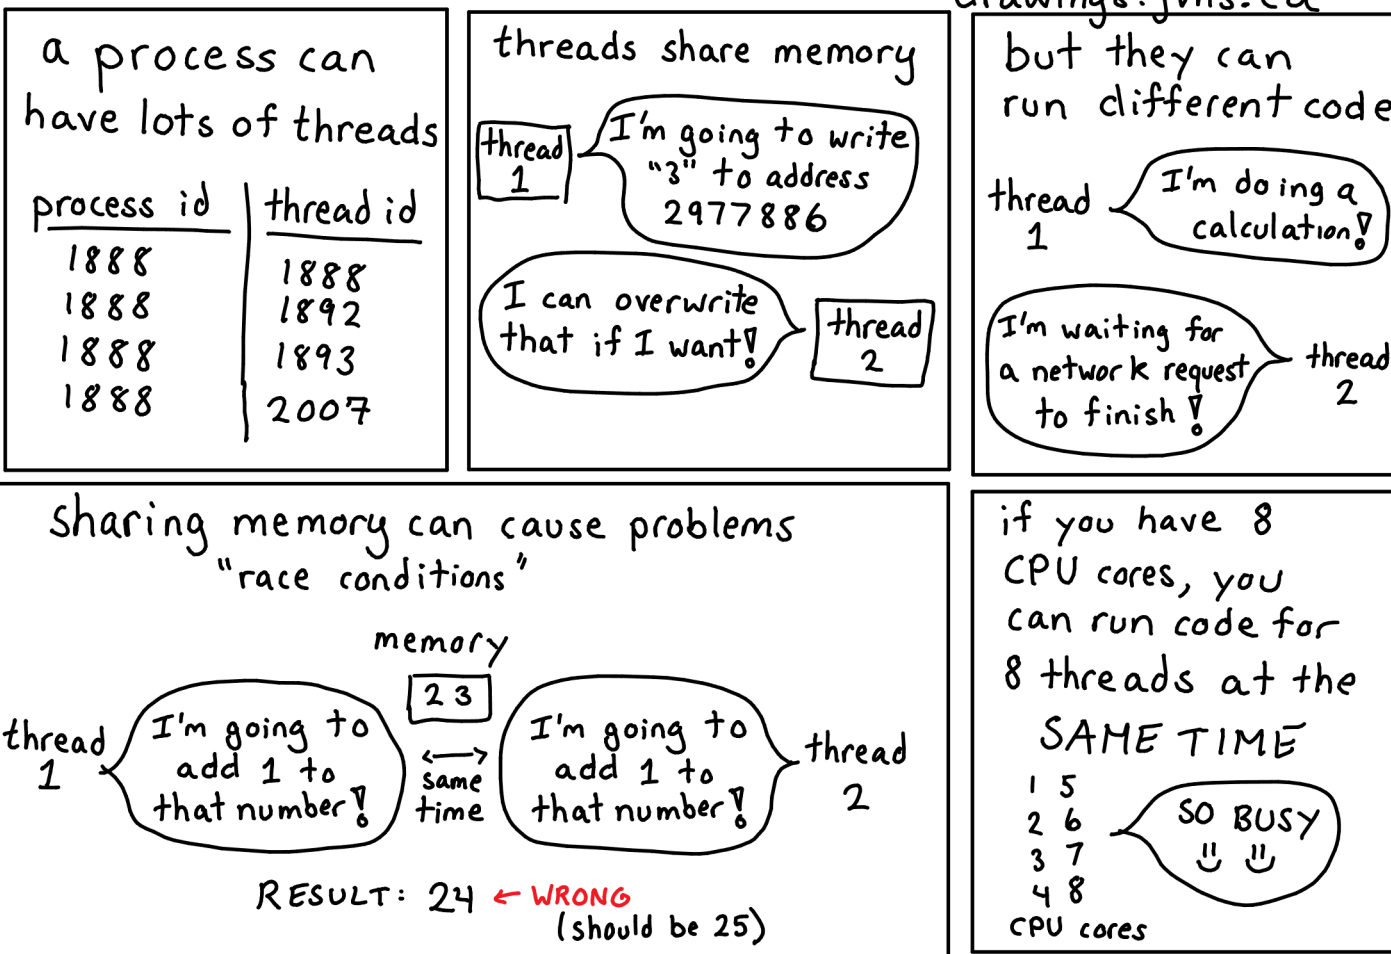 drawings.jvns.ca
a process can
have lots of threads
process id | thread id
1888 1888
1888 1892
1888 1893
1888 2007
threads share memory
thread
1
I'm going to write
"3" to address
2977886
I can overwrite
that if I want!
thread
2
but they can
run different code
thread
1
I'm doing a
calculation!
I'm waiting for
a network request
to finish!
thread
2
sharing memory can cause problems
"race conditions"
memory
23
thread
1
I'm going to
add 1 to
that number!
same
time
I'm going to
add 1 to
that number!
thread
2
RESULT: 24 ← WRONG
(should be 25)
if you have 8
CPU cores, you
can run code for
8 threads at the
SAME TIME
1 5
2 6
3 7
4 8
CPU cores
SO BUSY